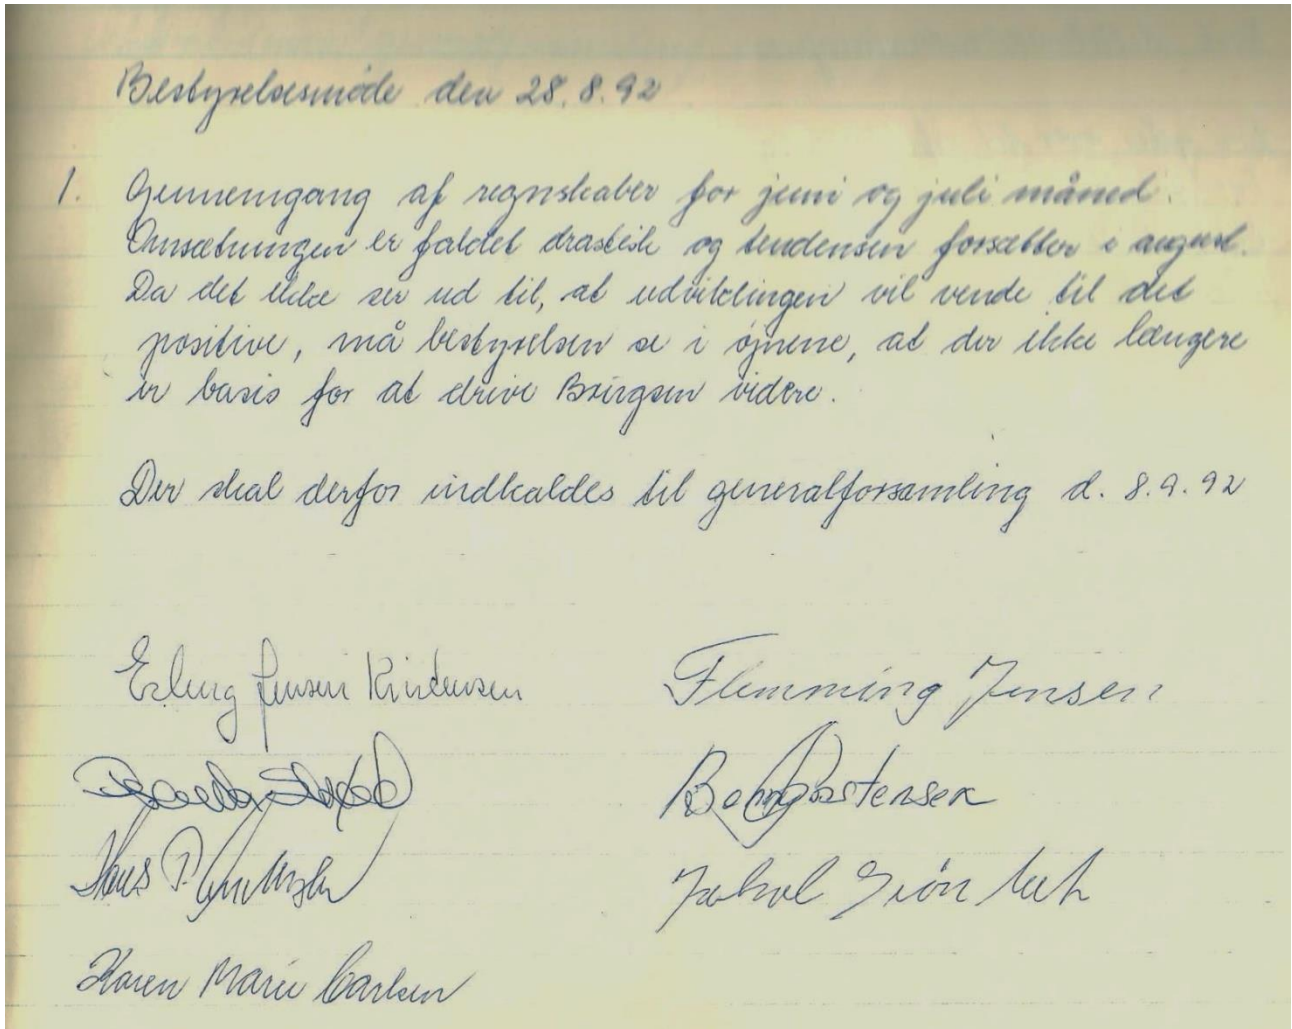 Bestyrelsesmøde den 28.8.92
1. Gennemgang af regnskaber for juni og juli måned.
Omsætningen er faldet drastisk og tendensen forsætter i august.
Da det ikke ser ud til, at udviklingen vil vende til det
positive, må bestyrelsen se i øjnene, at der ikke længere
er basis for at drive Brugsen videre.
Der skal derfor indkaldes til generalforsamling d. 8.9.92
Erling Jensen Kristensen Flemming Jensen
Hans P.
Karen Marie Carlsen